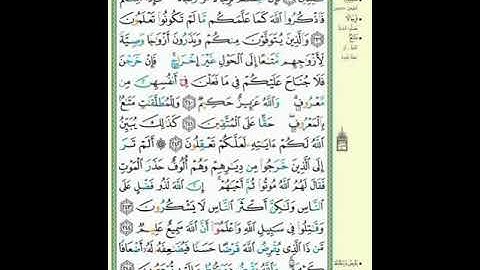 فَاذْكُرُوا اللَّهَ كَمَا عَلَّمَكُم مَّا لَمْ تَكُونُوا تَعْلَمُونَ
﴿٢٣٩﴾ وَالَّذِينَ يُتَوَفَّوْنَ مِنكُمْ وَيَذَرُونَ أَزْوَٰجًا وَصِيَّةً
لِّأَزْوَٰجِهِم مَّتَٰعًا إِلَى الْحَوْلِ غَيْرَ إِخْرَاجٍ ۚ فَإِنْ خَرَجْنَ
فَلَا جُنَاحَ عَلَيْكُمْ فِي مَا فَعَلْنَ فِي أَنفُسِهِنَّ مِن
مَّعْرُوفٍ ۗ وَاللَّهُ عَزِيزٌ حَكِيمٌ ﴿٢٤٠﴾ وَلِلْمُطَلَّقَٰتِ مَتَٰعٌ
بِالْمَعْرُوفِ ۖ حَقًّا عَلَى الْمُتَّقِينَ ﴿٢٤١﴾ كَذَٰلِكَ يُبَيِّنُ
اللَّهُ لَكُمْ ءَايَٰتِهِ لَعَلَّكُمْ تَعْقِلُونَ ﴿٢٤٢﴾ أَلَمْ تَرَ
إِلَى الَّذِينَ خَرَجُوا مِن دِيَٰرِهِمْ وَهُمْ أُلُوفٌ حَذَرَ الْمَوْتِ
فَقَالَ لَهُمُ اللَّهُ مُوتُوا ثُمَّ أَحْيَٰهُمْ ۚ إِنَّ اللَّهَ لَذُو فَضْلٍ عَلَى
النَّاسِ وَلَٰكِنَّ أَكْثَرَ النَّاسِ لَا يَشْكُرُونَ ﴿٢٤٣﴾
وَقَٰتِلُوا فِي سَبِيلِ اللَّهِ وَاعْلَمُوا أَنَّ اللَّهَ سَمِيعٌ عَلِيمٌ ﴿٢٤٤﴾
مَّن ذَا الَّذِي يُقْرِضُ اللَّهَ قَرْضًا حَسَنًا فَيُضَٰعِفَهُ لَهُ أَضْعَافًا